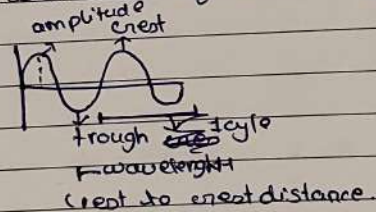 amplitude
crest
trough 1cyle
wavelenght
crest to crest distance.